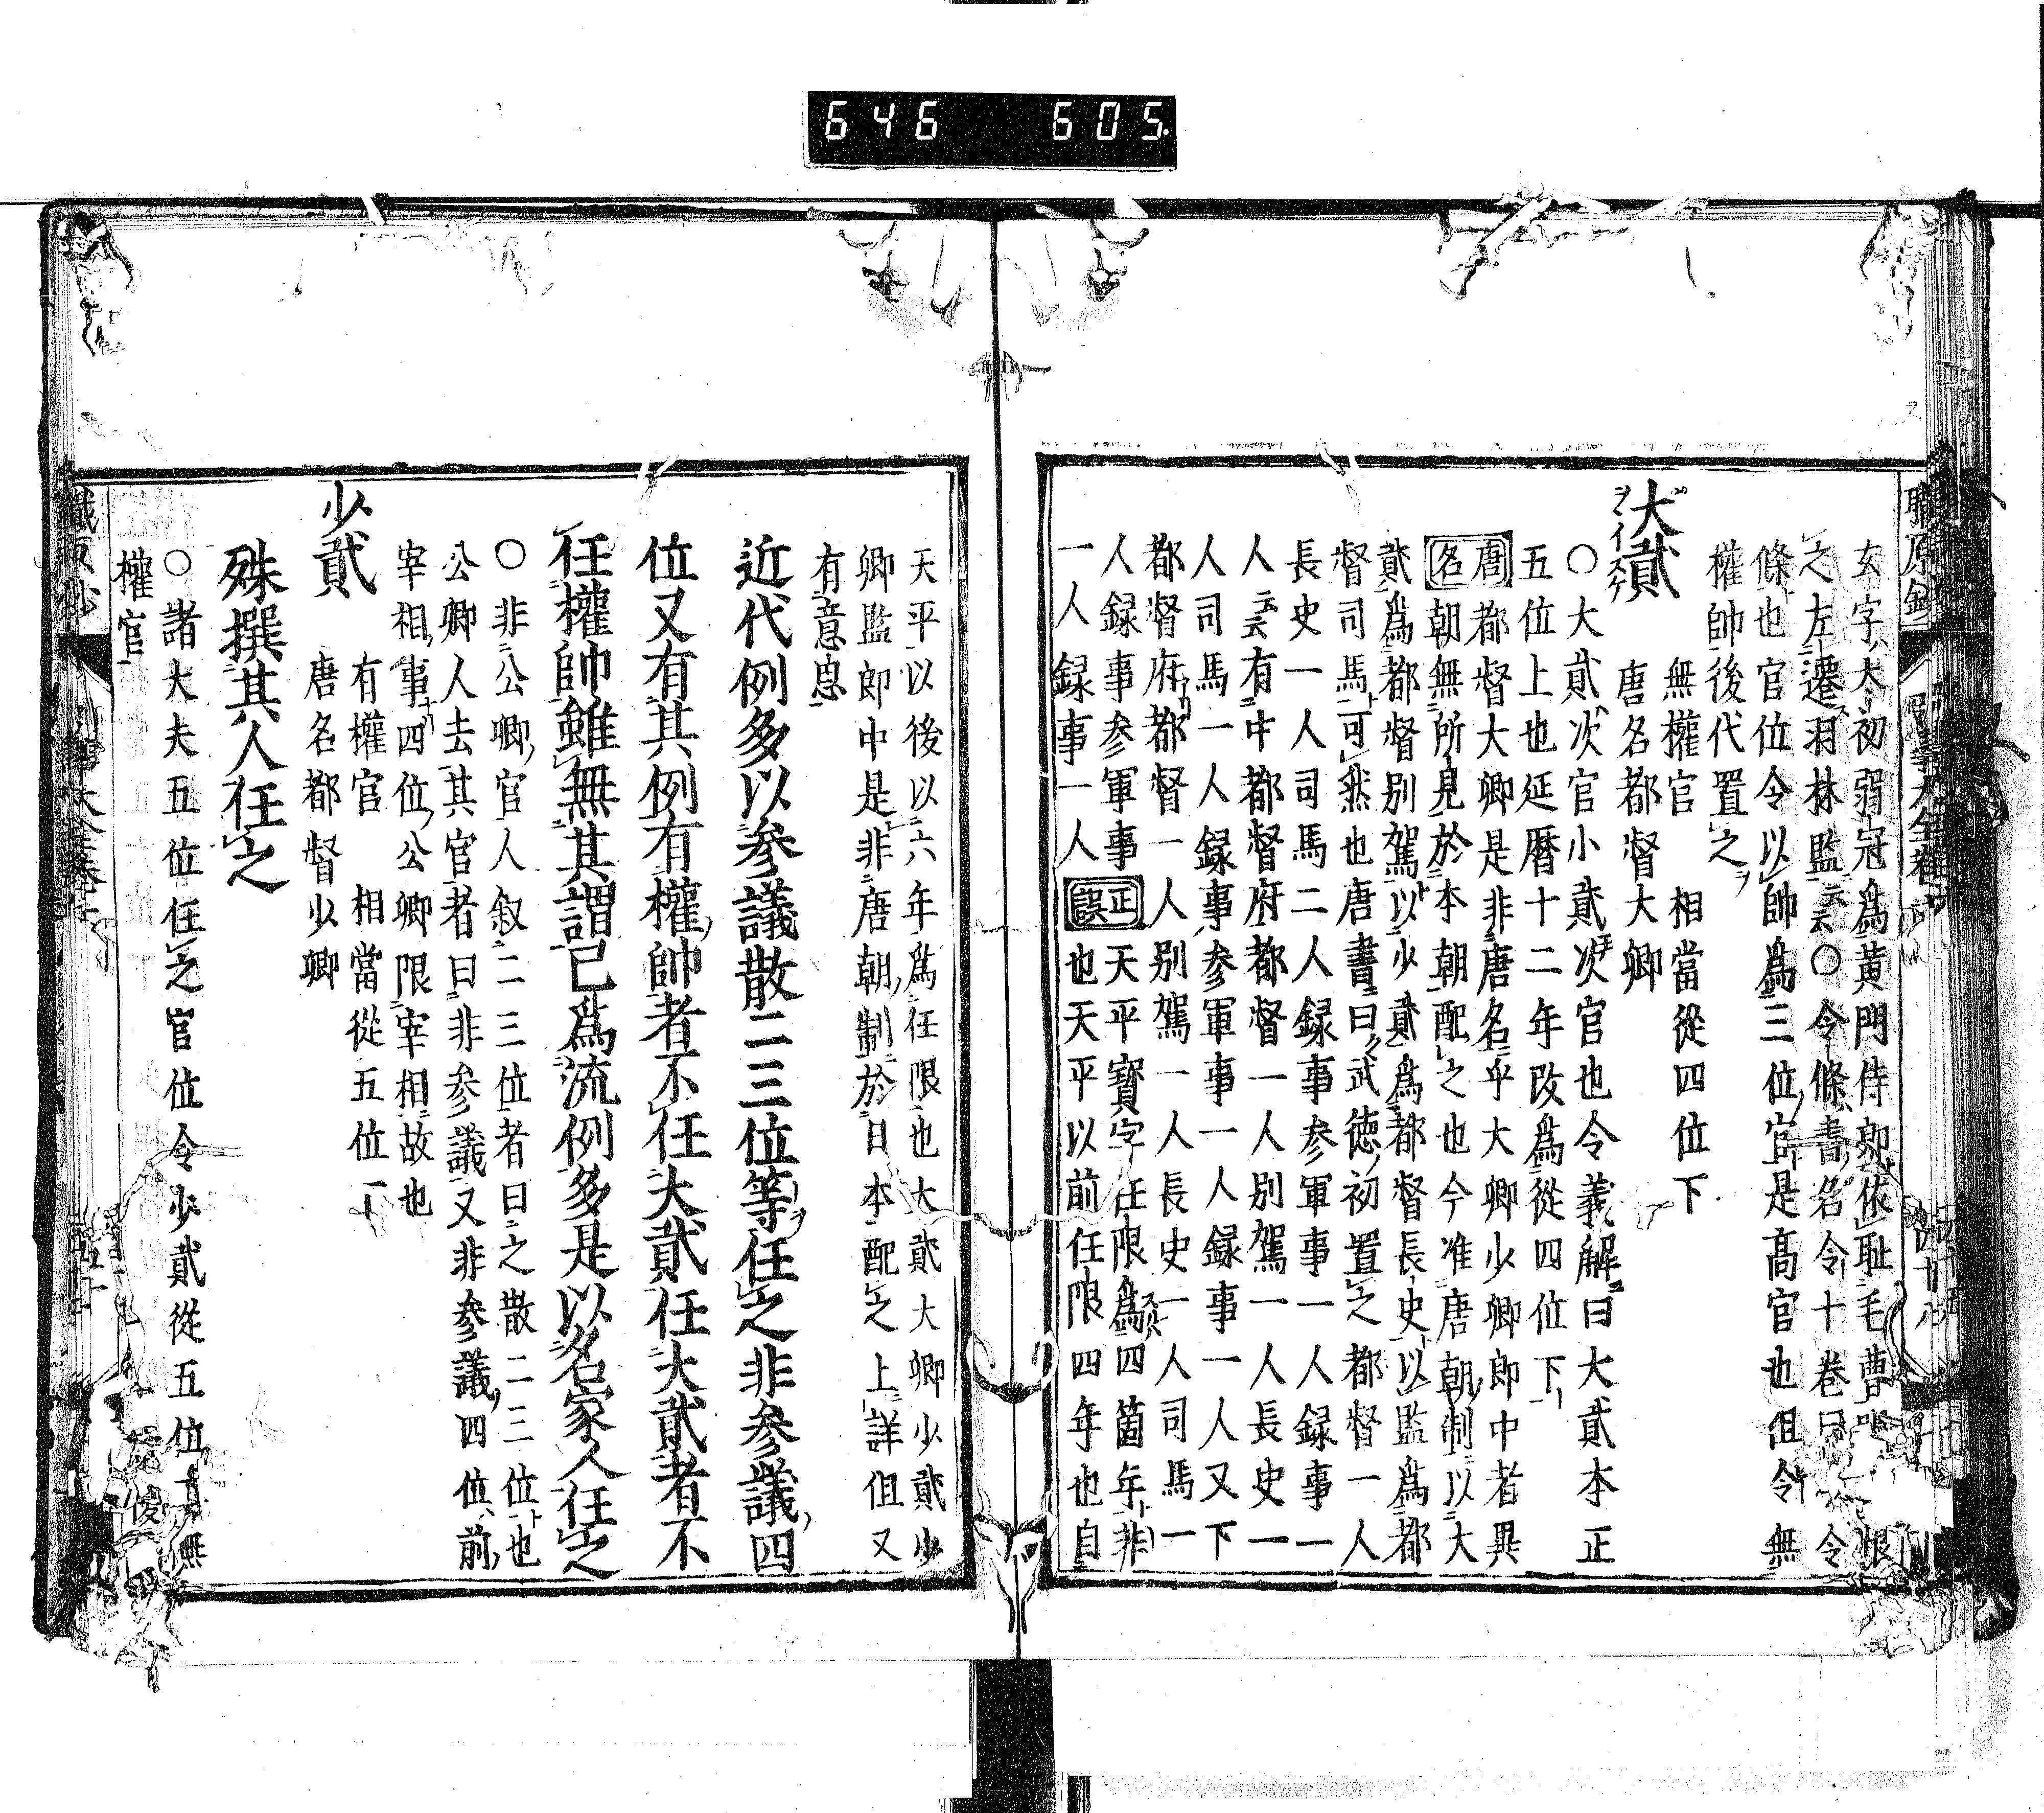 646 605.
職原鈔
玄字大初弱冠爲黄門侍郎依耻毛曹
之左遷羽林監云云○令條書名令十卷曰令
條也官位令以帥爲三位官是髙官也但令無
權帥後代置之
大貳 無權官 相當從四位下
唐名都督大卿
○大貳次官小貳次官也令義解曰大貳本正
五位上也延暦十二年改爲從四位下
唐都督大卿是非唐名乎大卿少卿郎中者異
名朝無所見於本朝配之也今准唐朝制以大
貳爲都督别駕以少貳爲都督長史以監爲都
督司馬可然也唐書曰武德初置之都督一人
長史一人司馬二人録事参軍事一人録事一
人云云有中都督府都督一人别駕一人長史一
人司馬一人録事参軍事一人録事一人又下
都督府都督一人别駕一人長史一人司馬一
人録事参軍事正天平寳字任限爲四箇年非
一人録事一人誤也天平以前任限四年也自
天平以後以六年爲任限也大貳大卿少貳少
卿監郎中是非唐朝制於日本配之上詳但又
有意息
近代例多以参議散二三位等任之非参議四
位又有其例有權帥者不任大貳任大貳者不
任權帥雖無其謂已爲流例多是以名家人任之
○非公卿官人叙二三位者曰之散二三位也
公卿人去其官者曰非参議又非参議四位前
宰相事四位公卿限宰相故也
少貳 有權官 相當從五位下
唐名都督少卿
殊撰其人任之
○諸大夫五位任之官位令少貳從五位下無
權官
職原鈔